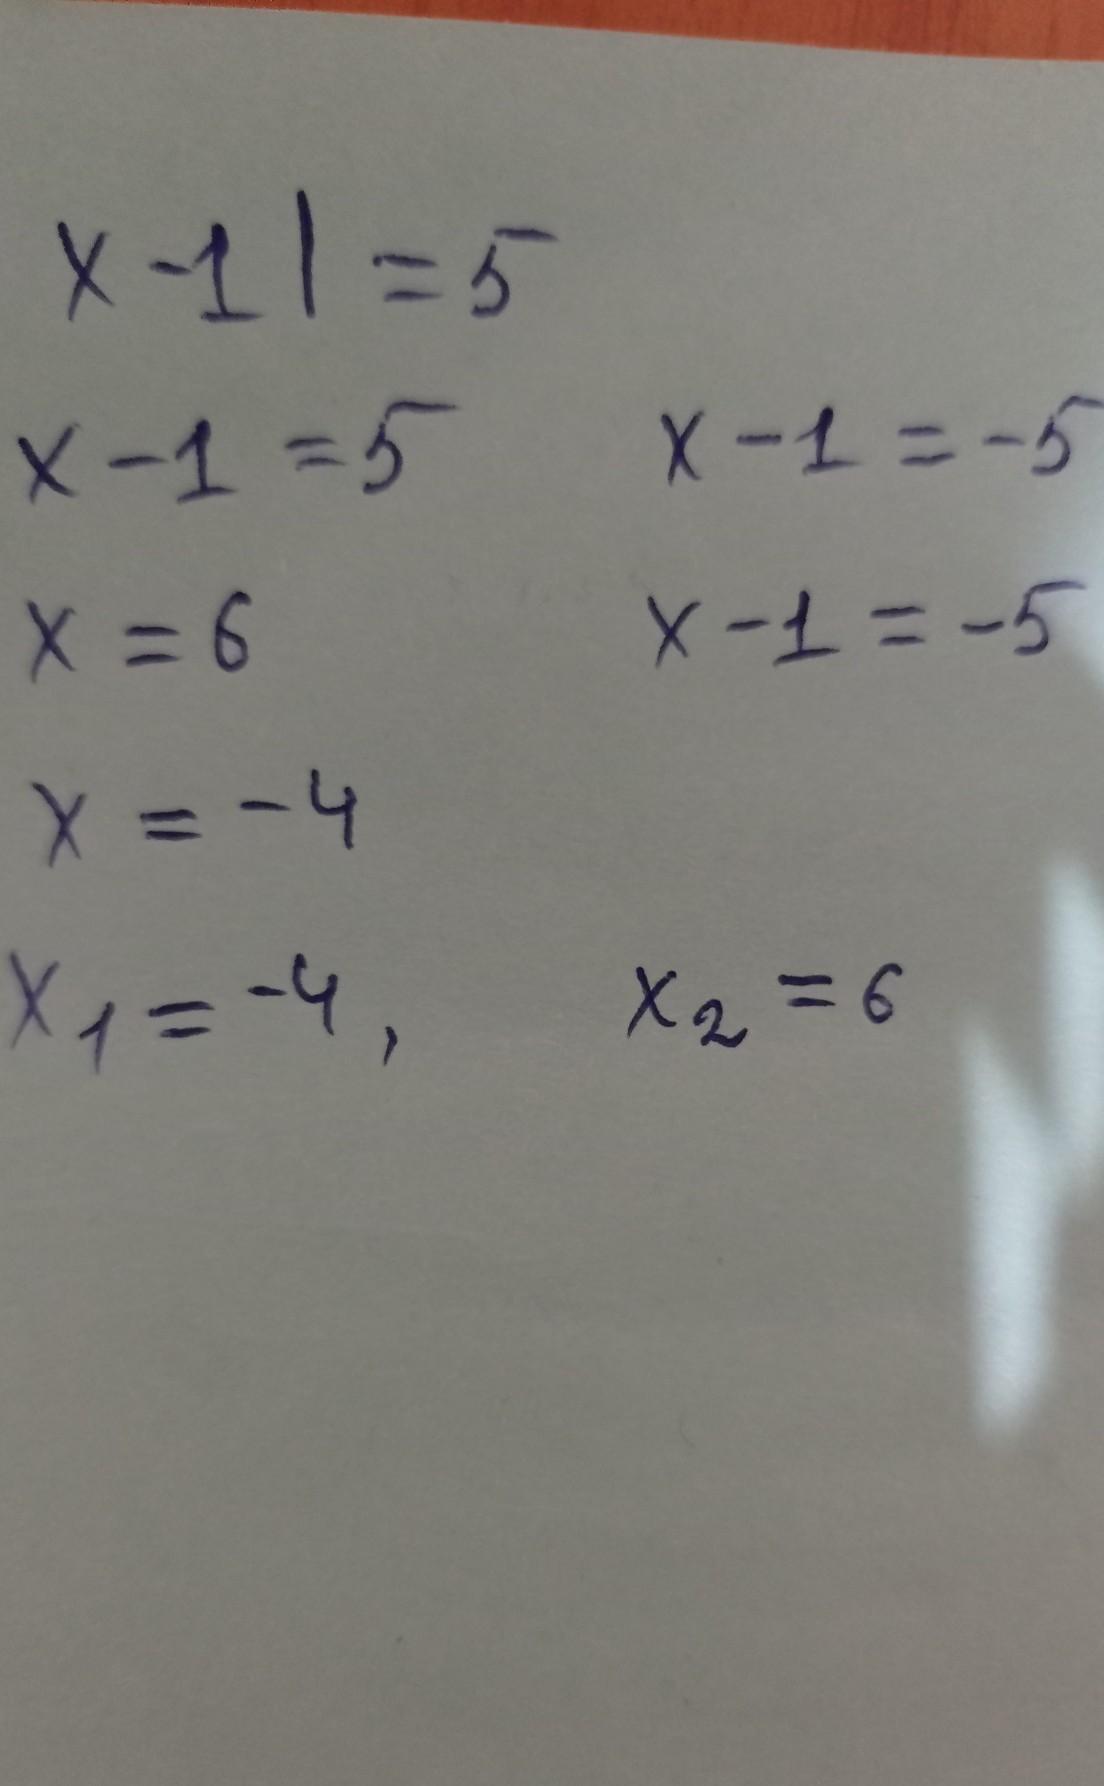 x - 1 | = 5
x - 1 = 5 x - 1 = -5
x = 6 x - 1 = -5
x = -4
x₁ = -4, x₂ = 6